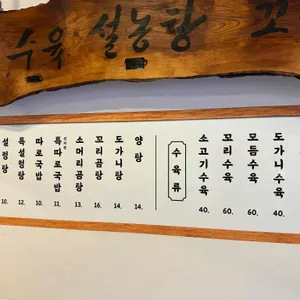 수육 설농탕 꼬
설렁탕 10.
특설렁탕 12.
따로국밥 10.
특따로국밥 11.
소머리곰탕 13.
꼬리곰탕 16.
도가니탕 14.
양탕 14.
수육류
소고기수육 40.
꼬리수육 60.
모듬수육 60.
도가니수육 40.